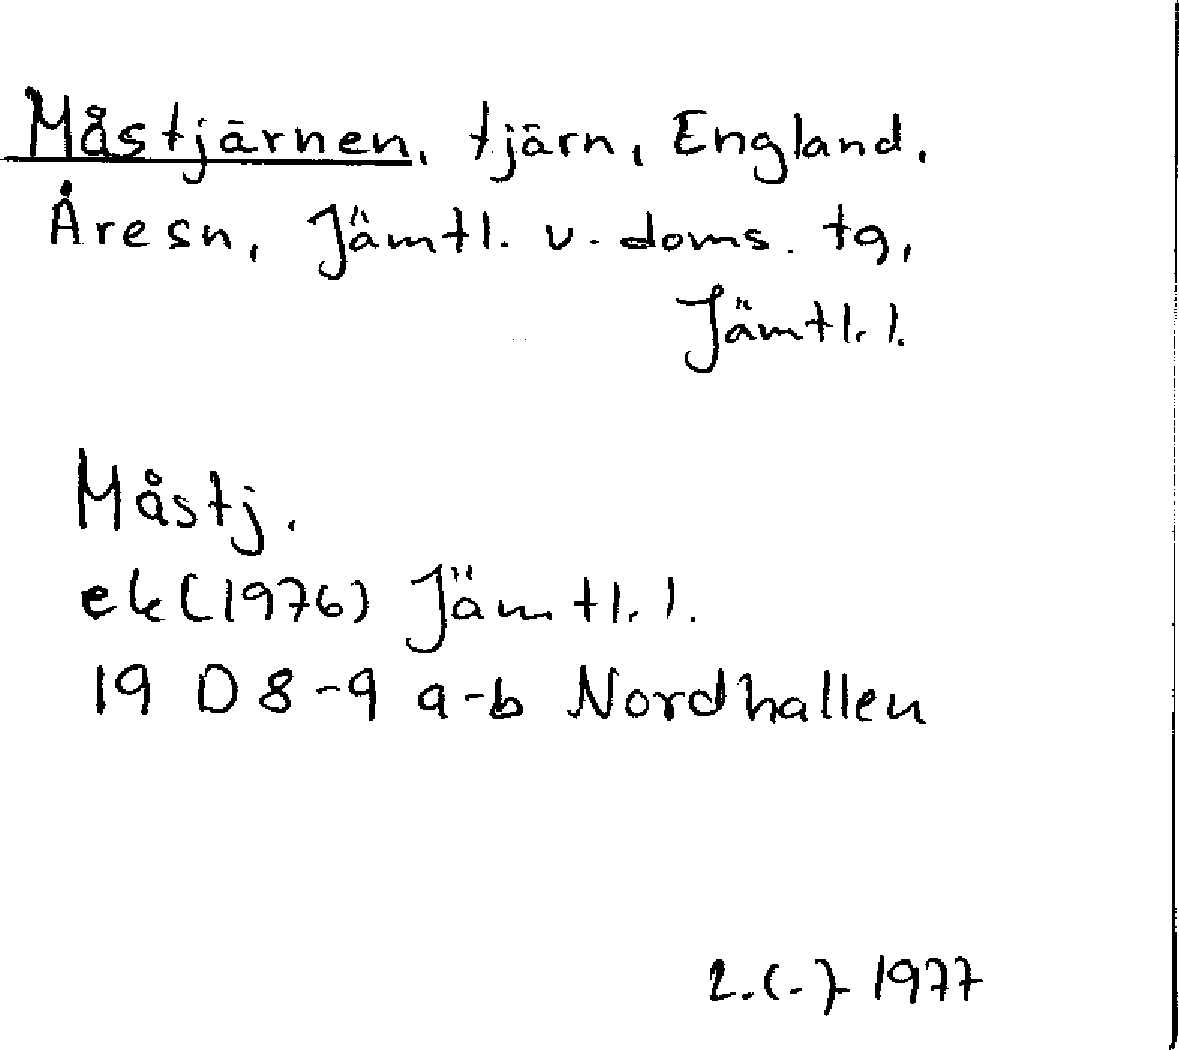 Måstjärnen, tjärn, England,
Åresn, Jämtl. v. doms. tg,
Jämtl. l.
Måstj.
ek (1976) Jämtl. l.
19 D 8-9 a-b Nordhallen
1977